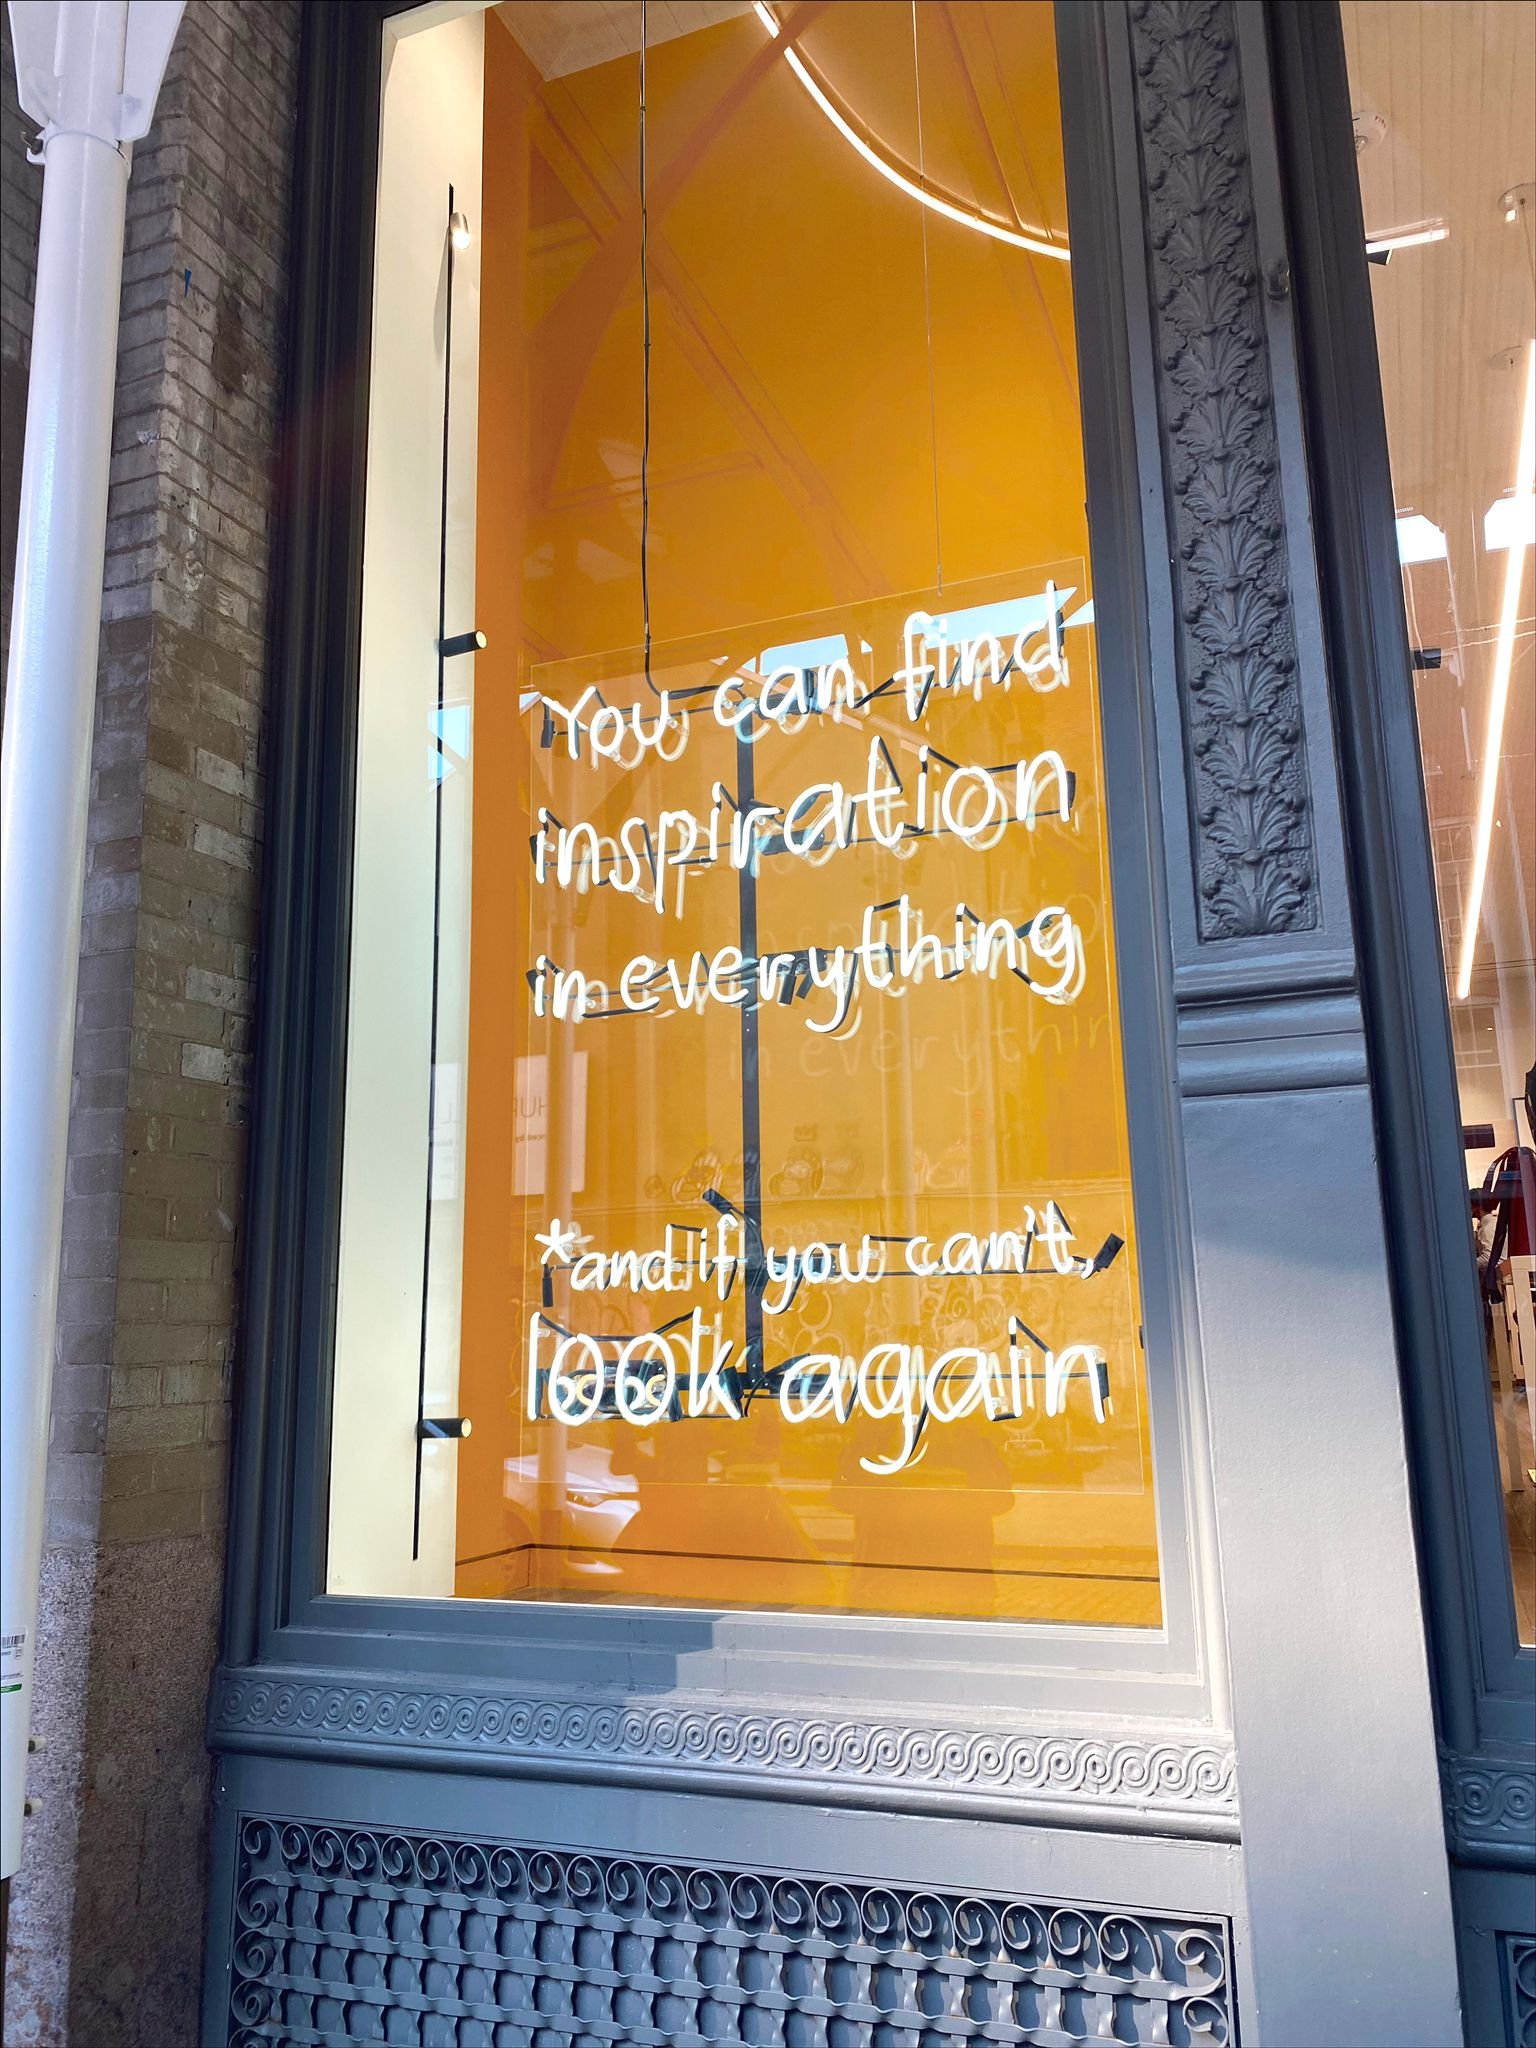 You can find
inspiration
in everything
*and if you can't,
look again